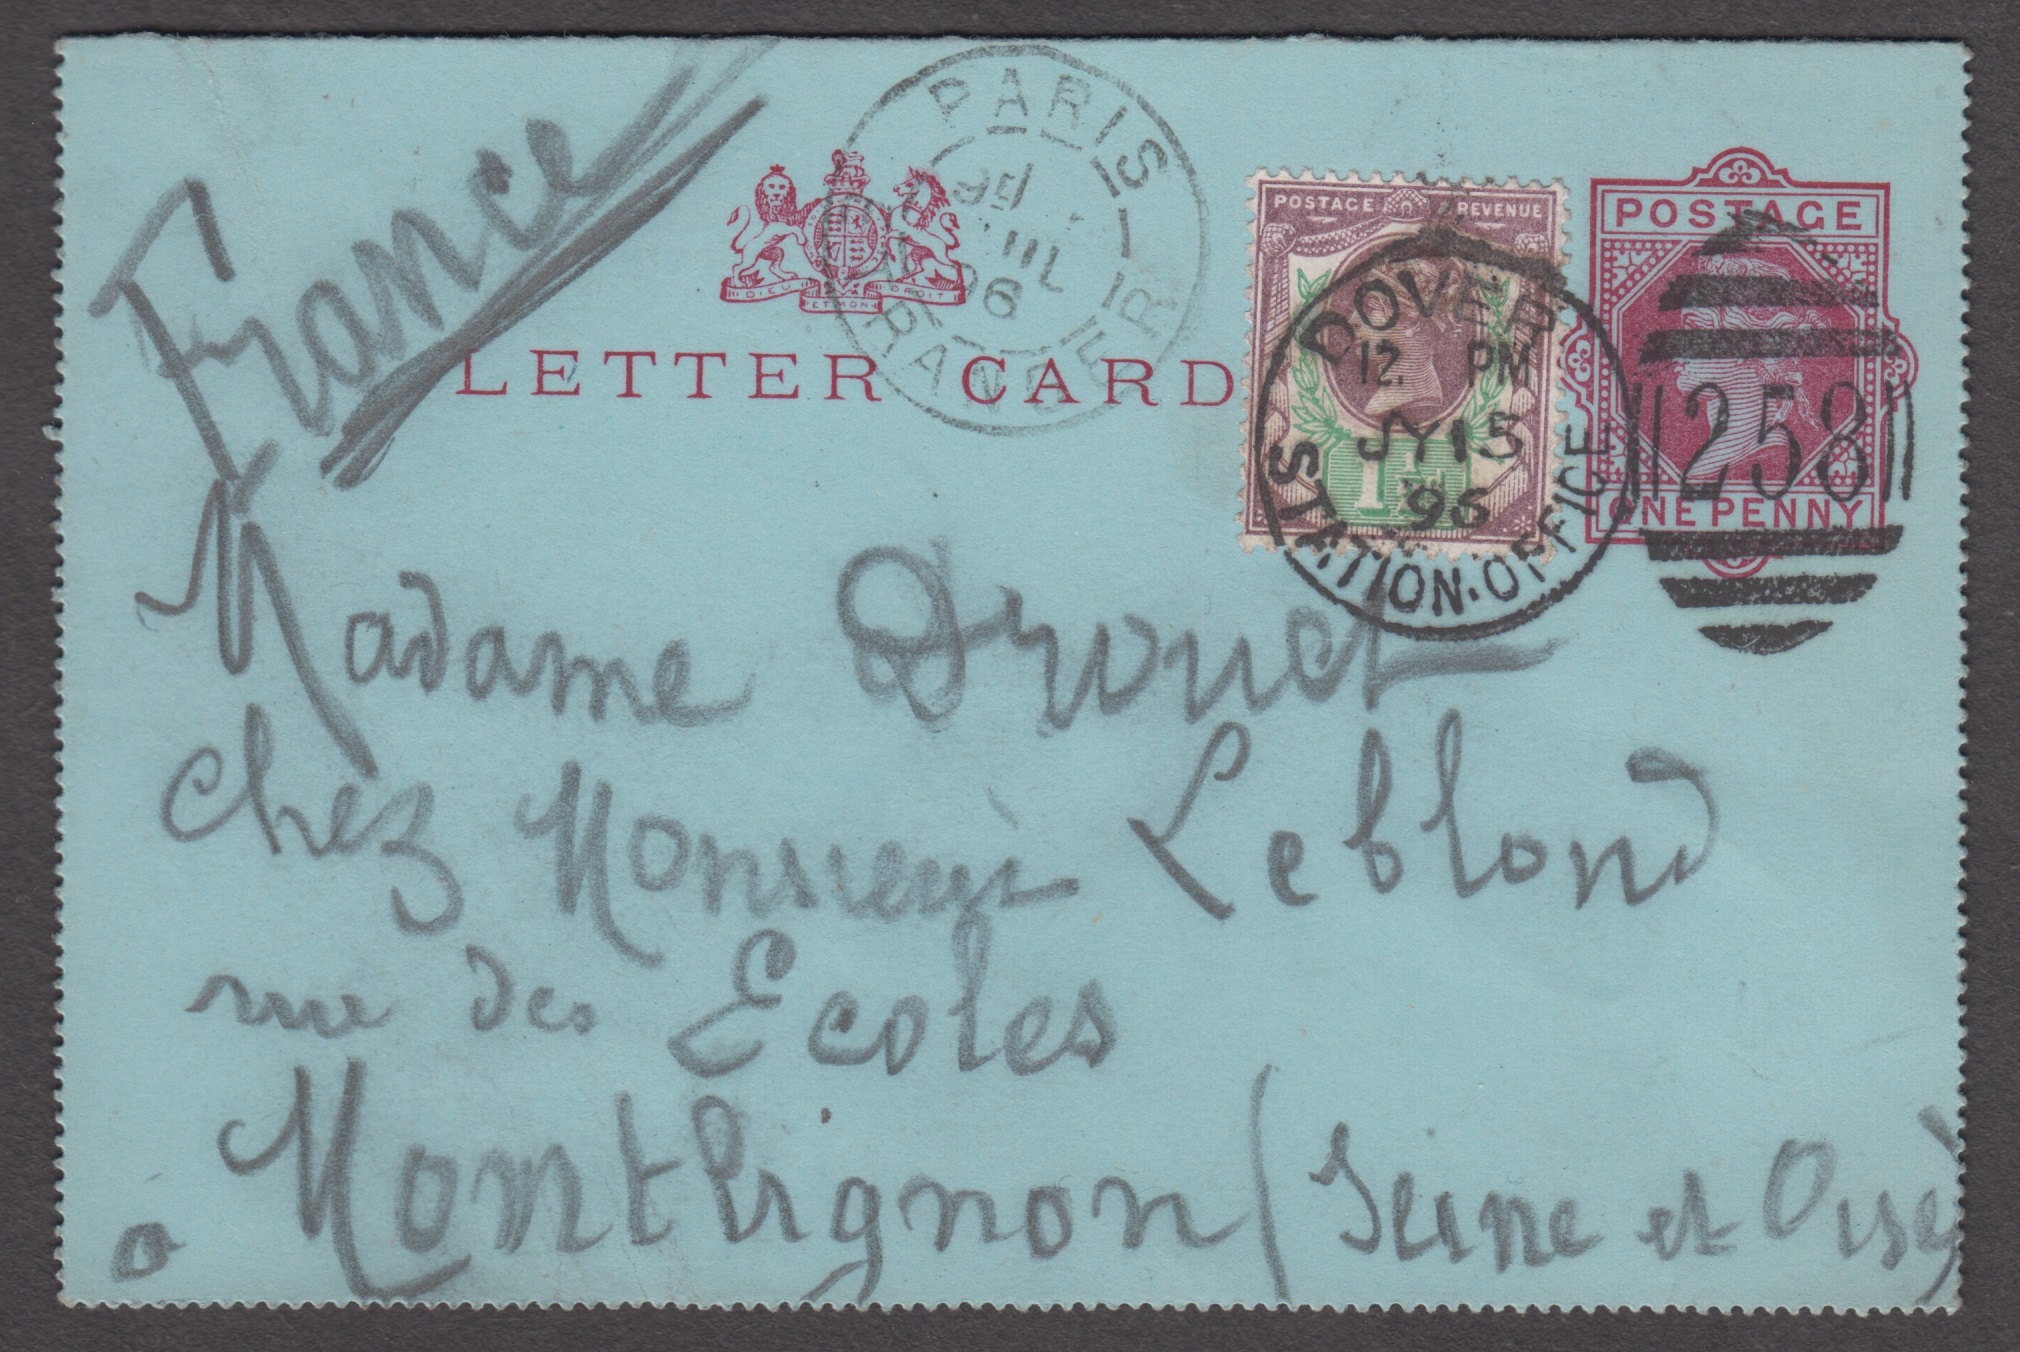 France
PARIS
JUIL
96
ETRANGER
DIEU ET MON DROIT
LETTER CARD
POSTAGE REVENUE
1½
DOVER
12. PM
JY 15
96
STATION.OFFICE
POSTAGE
258
ONE PENNY
Madame Drouet
chez Monsieur Leblond
rue des Ecoles
Montlignon (Seine et Oise)